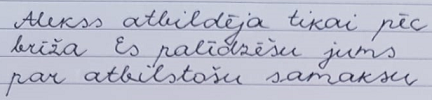 Alekss atbildēja tikai pēc
brīža Es palīdzēšu jums
par atbilstošu samaksu